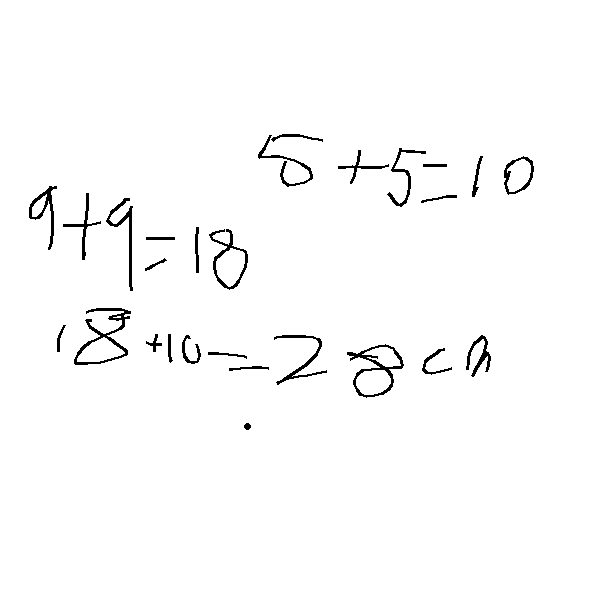 5+5=10
9+9=18
18+10=28cm